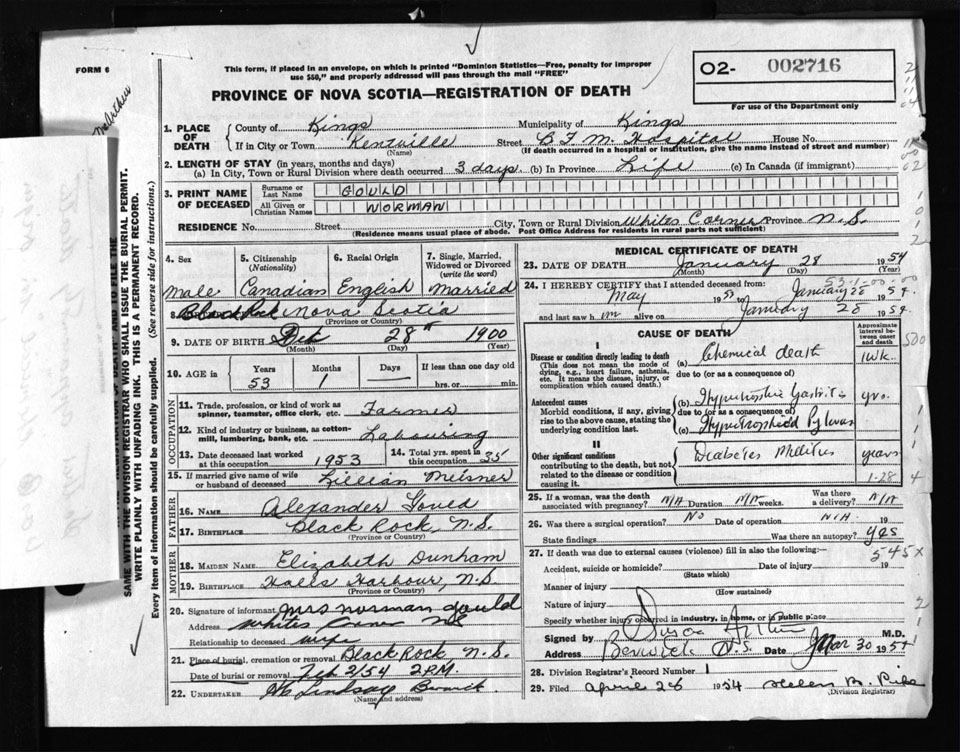 FORM 6
This form, if placed in an envelope, on which is printed "Dominion Statistics—Free, penalty for improper
use $50," and properly addressed will pass through the mail "FREE"
PROVINCE OF NOVA SCOTIA—REGISTRATION OF DEATH
O2- 002716
For use of the Department only
McArthur
SAME WITH THE DIVISION REGISTRAR WHO SHALL ISSUE THE BURIAL PERMIT.
WRITE PLAINLY WITH UNFADING INK. THIS IS A PERMANENT RECORD.
Every item of information should be carefully supplied. (See reverse side for instructions.)
1. PLACE OF DEATH
County of Kings Municipality of Kings
If in City or Town Kentville Street B F M. Hospital House No.
(Name) (If death occurred in a hospital or institution, give the name instead of street and number)
2. LENGTH OF STAY (in years, months and days)
(a) In City, Town or Rural Division where death occurred 3 days (b) In Province Life (c) In Canada (if immigrant)
3. PRINT NAME OF DECEASED
Surname or Last Name GOULD
All Given or Christian Names NORMAN
RESIDENCE No. Street City, Town or Rural Division Whites Corner Province N.S.
(Residence means usual place of abode. Post Office Address for residents in rural parts not sufficient)
4. Sex Male
5. Citizenship (Nationality) Canadian
6. Racial Origin English
7. Single, Married, Widowed or Divorced (write the word) Married
8. Black Rock Nova Scotia
(Province or Country)
9. DATE OF BIRTH Dec 28th 1900
(Month) (Day) (Year)
10. AGE in Years 53 Months 1 Days — If less than one day old hrs. or min.
OCCUPATION
11. Trade, profession, or kind of work as spinner, teamster, office clerk, etc. Farmer
12. Kind of industry or business, as cotton-mill, lumbering, bank, etc. Labouring
13. Date deceased last worked at this occupation 1953
14. Total yrs. spent in this occupation 35
15. If married give name of wife or husband of deceased Lillian Meisner
FATHER
16. NAME Alexander Gould
17. BIRTHPLACE Black Rock N.S.
(Province or Country)
MOTHER
18. MAIDEN NAME Elizabeth Dunham
19. BIRTHPLACE Halls Harbour, N.S.
(Province or Country)
20. Signature of informant Mrs Norman Gould
Address Whites Corner N S
Relationship to deceased wife
21. Place of burial, cremation or removal Black Rock N.S.
Date of burial or removal Feb 2/54 2 P.M.
22. UNDERTAKER Lindsay
(Name and address)
MEDICAL CERTIFICATE OF DEATH
23. DATE OF DEATH January 28 1954
(Month) (Day) (Year)
24. I HEREBY CERTIFY that I attended deceased from:
May 1953 to January 28 1954
and last saw h im alive on January 28 1954
CAUSE OF DEATH
Approximate interval between onset and death
I
Disease or condition directly leading to death (a) Chemical death 1 wk.
(This does not mean the mode of dying, e.g., heart failure, asthenia, etc. It means the disease, injury, or complication which caused death.)
due to (or as a consequence of)
Antecedent causes (b) Hypertrophic Gastritis yrs.
Morbid conditions, if any, giving rise to the above cause, stating the underlying condition last.
due to (or as a consequence of)
(c) Hypertrophied Pylorus
II
Other significant conditions Diabetes Mellitus years
contributing to the death, but not related to the disease or condition causing it.
1-28-4
25. If a woman, was the death associated with pregnancy? N/A Duration N/A weeks. Was there a delivery? N/A
26. Was there a surgical operation? No Date of operation N/A 19
State findings Was there an autopsy? yes
27. If death was due to external causes (violence) fill in also the following:—
545 x
Accident, suicide or homicide? Date of injury 19
(State which)
Manner of injury
(How sustained)
Nature of injury
Specify whether injury occurred in industry, in home, or in public place
Signed by M.D.
Address Berwick N.S. Date Mar 30 1954
28. Division Registrar's Record Number 1
29. Filed April 28 1954 Helen M. Pike
(Division Registrar)